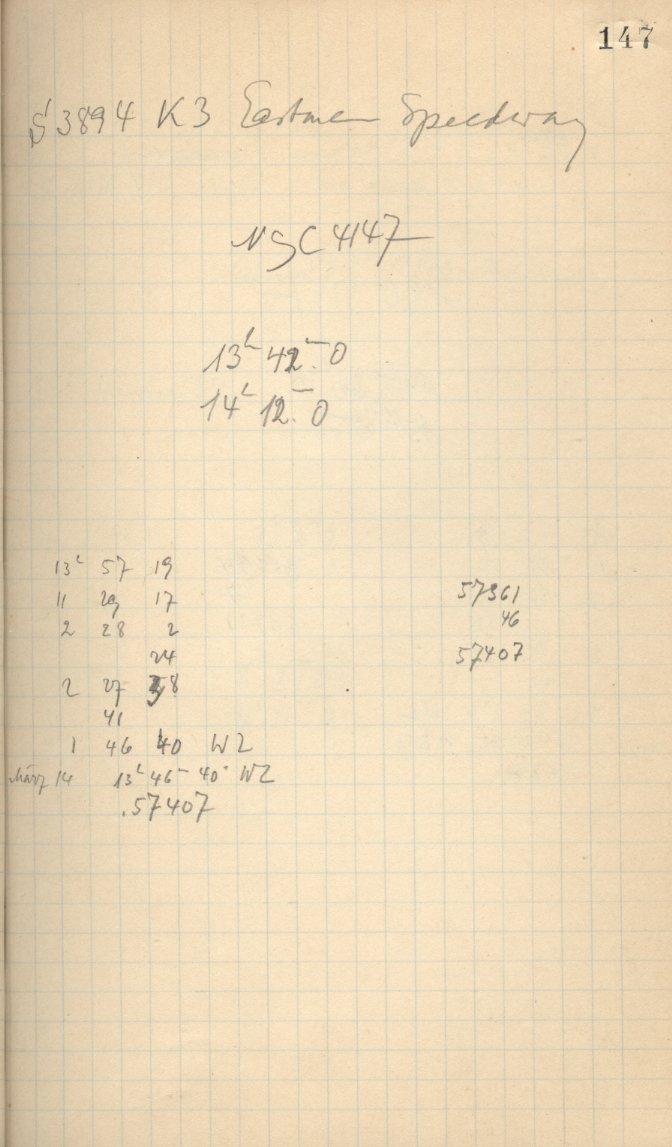 147
S 3894 K3 Eastman Speedway
NGC 4147
13h 42m.0
14h 12m.0
13h 57 19
11 29 17
2 28 2
24
2 27 38
41
1 46 40 WZ
März 14 13h 46m 40s WZ
.57407
57361
46
57407